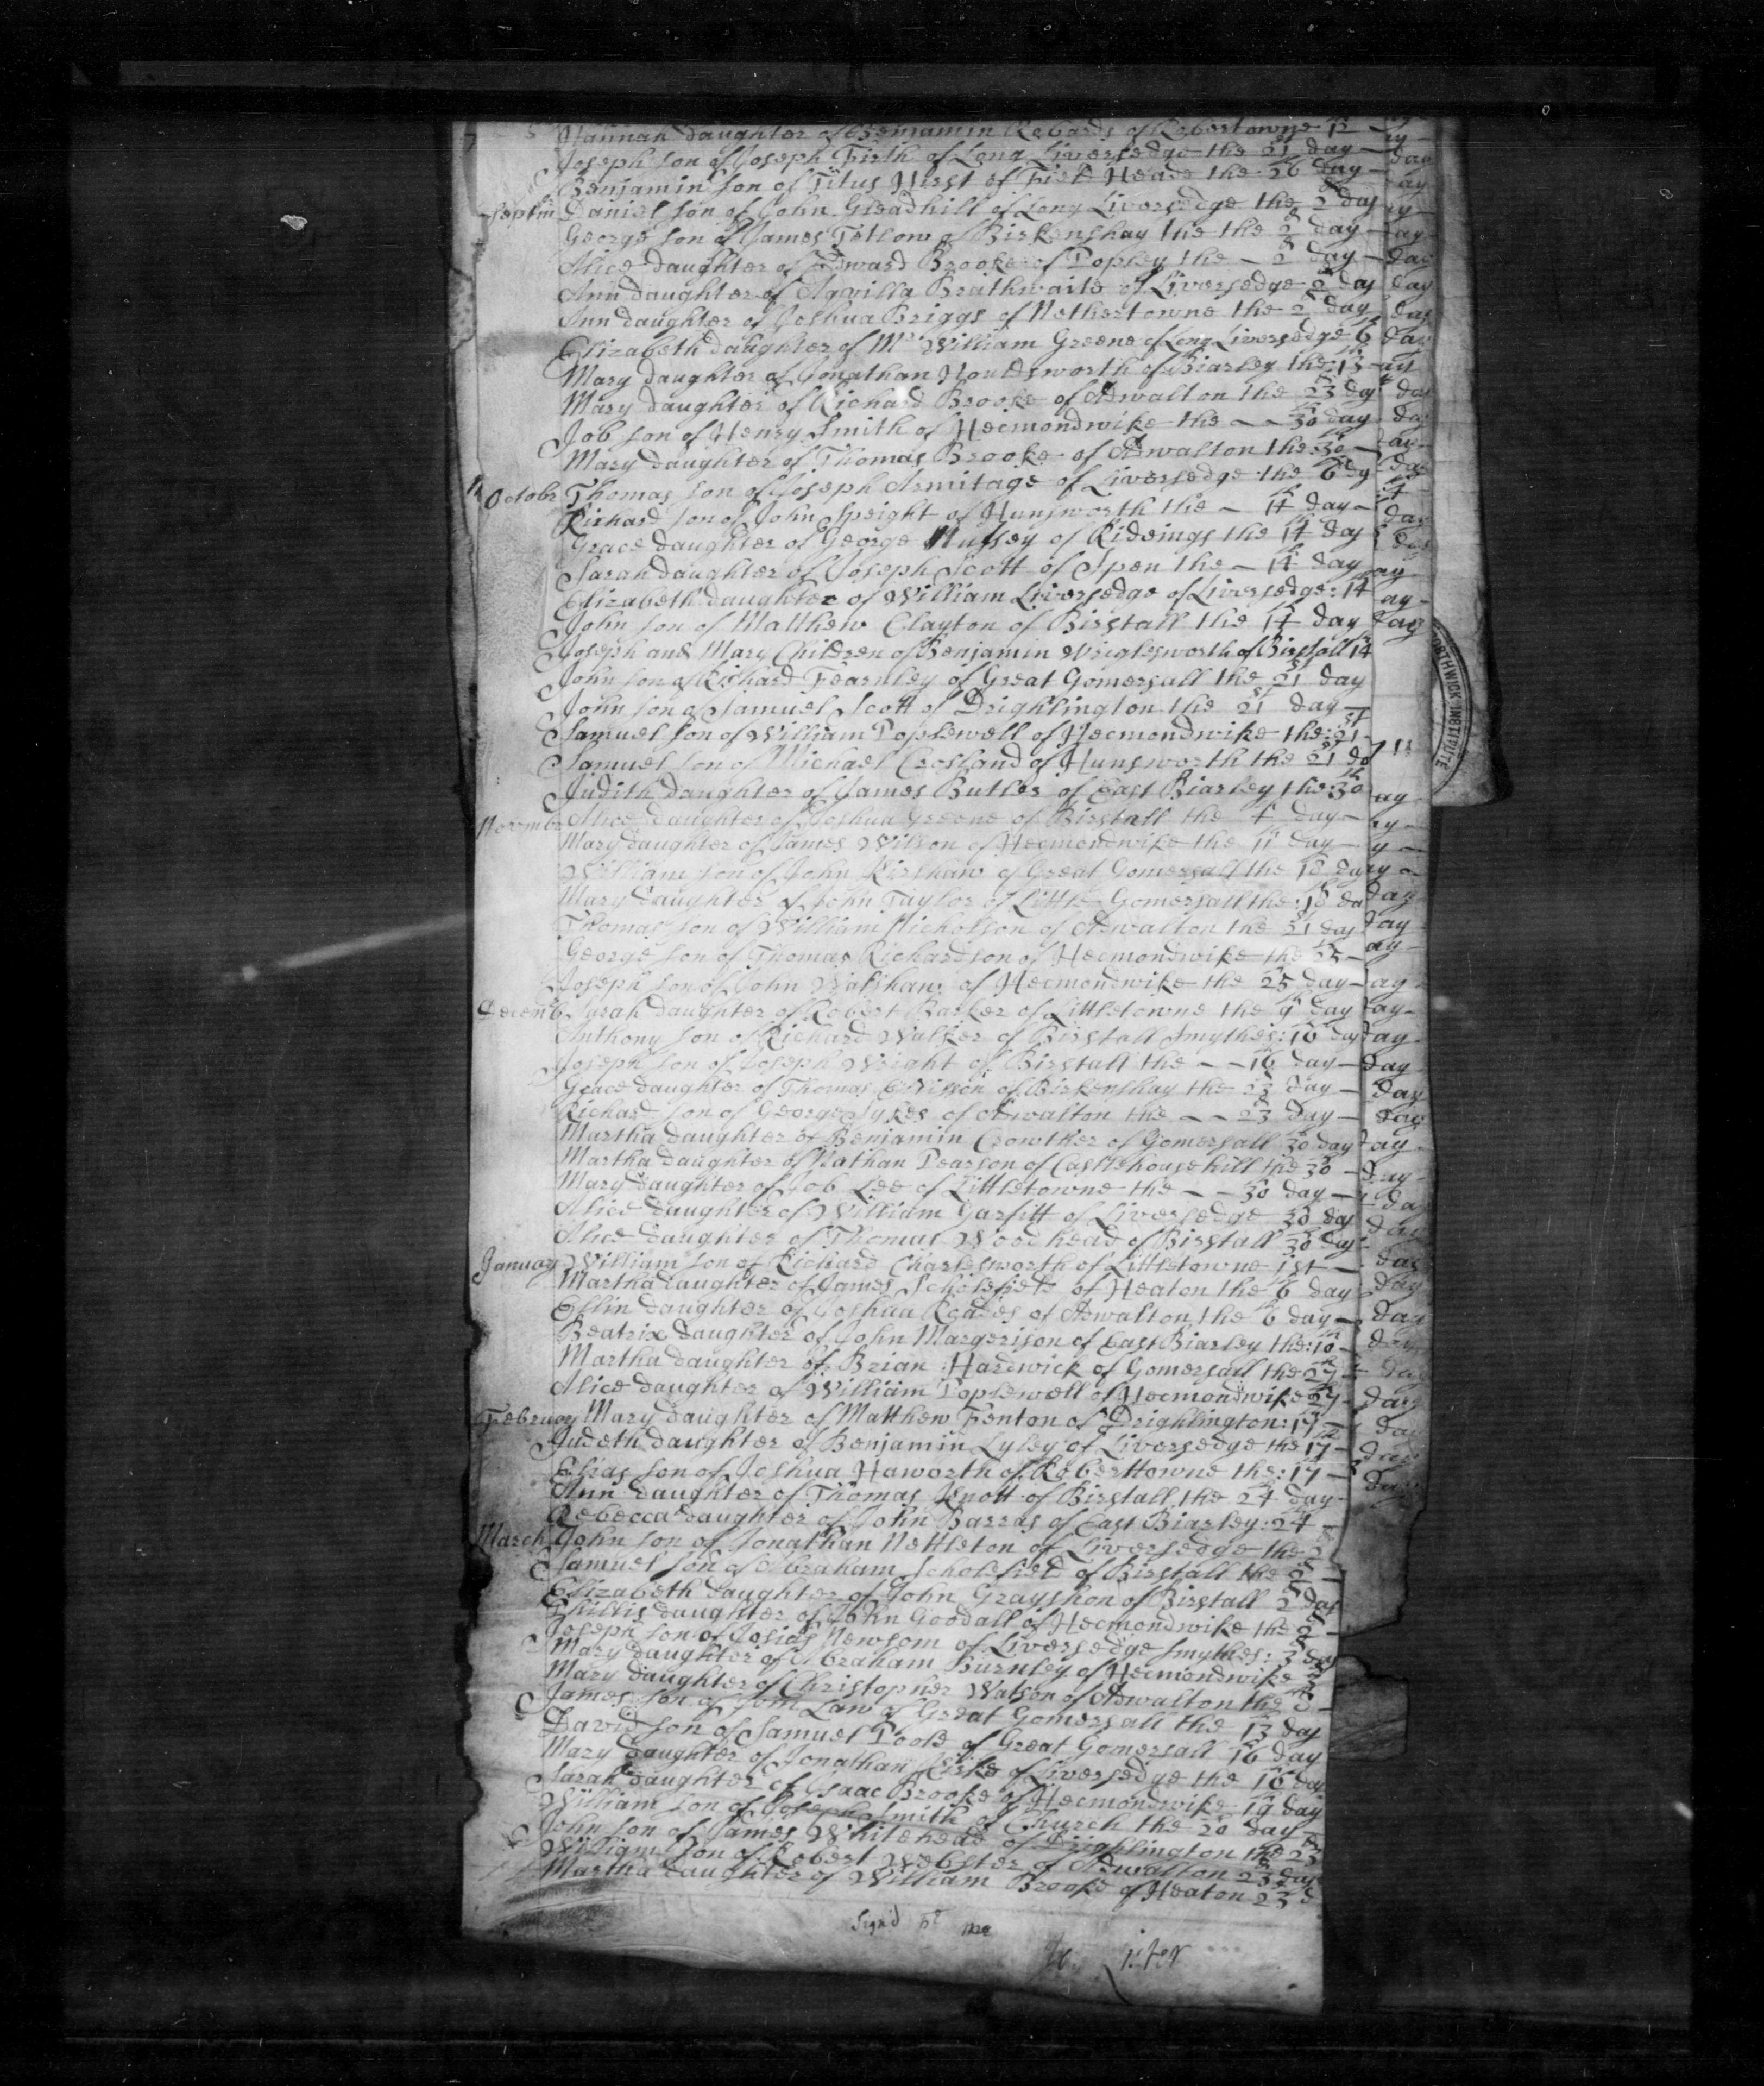 Hannah daughter of Benjamin Robards of Robertowne 12
Joseph son of Joseph Firth of Long Liversedge the 21 day
Benjamin son of Titus Hirst of Heade the 26 day
Septm Daniel son of John Gleadhill of Long Liversedge the 2 day
George son of James Tetlow of Birkenshay the the 2d day
Alice daughter of Edward Brooke of Popley the 2 day
Ann daughter of Aqwilla Brathwaite of Liversedge 2 day
Ann daughter of Joshua Briggs of Nethertowne the 2 day
Elizabeth daughter of Mr William Greene of Long Liversedge 6
Mary daughter of Jonathan Houldsworth of Biarley the 13
Mary daughter of Richard Brooke of Adwalton the 23 day
Job son of Henry Smith of Hecmondwike the 30 day
Mary daughter of Thomas Brooke of Adwalton the 30
Octobr Thomas son of Joseph Armitage of Liversedge the 6 dy
Richard son of John Speight of Hunsworth the 14 day
Grace daughter of George Nussey of Ridings the 14 day
Sarah daughter of Joseph Scott of Spen the 14 day
Elizabeth daughter of William Liversedge of Liversedge: 14
John son of Matthew Clayton of Birstall the 14 day
Joseph and Mary Children of Benjamin Wriglesworth of Birstall 14
John son of Richard Fearnley of Great Gomersall the 21 day
John son of Samuel Scott of Drighlington the 21 day
Samuel son of William Poplewell of Hecmondwike the: 21
Samuel son of Michael Crosland of Hunsworth the 21 d
Judith daughter of James Butler of East Biarley the: 30
Novembr Alice daughter of Joshua Greene of Birstall the 4 day
Mary daughter of James Wilson of Hecmondwike the 11 day
William son of John Kershaw of Great Gomersall the 18 day
Mary daughter of John Taylor of Little Gomersall the: 18 da
Thomas son of William Nicholson of Adwalton the 21 day
George son of Thomas Richardson of Hecmondwike the 25
Joseph son of John Walshaw of Hecmondwike the 25 day
Decemb Sarah daughter of Robert Barker of Littletowne the 9 day
Anthony son of Richard Walker of Birstall Smythes: 16 day
Joseph son of Joseph Wright of Birstall the 16 day
Grace daughter of Thomas of Birkenshay the 23 day
Richard son of George Sykes of Adwalton the 23 day
Martha daughter of Benjamin Crowther of Gomersall 30 day
Martha daughter of Nathan Pearson of Castlehouse hill the 30
Mary daughter of Job Lee of Littletowne the 30 day
Alice daughter of William Garfitt of Liversedge 30 day
Alice daughter of Thomas Woodhead of Birstall 30 day
January William son of Richard Charlesworth of Littletowne 1st
Martha daughter of James Scholefield of Heaton the 6 day
Ellin daughter of Joshua Roades of Adwalton the 6 day
Beatrix daughter of John Margerison of East Biarley the: 10
Martha daughter of Brian Hardwick of Gomersall the 27
Alice daughter of William Poplewell of Hecmondwike 27
Februay Mary daughter of Matthew Fenton of Drighlington: 17
Judeth daughter of Benjamin Lyley of Liversedge the 17
Elias son of Joshua Haworth of Roberttowne the: 17
Ann daughter of Thomas Knott of Birstall the 24 day
Rebecca daughter of John Barras of East Biarley: 24
March John son of Jonathan Nettleton of Liversedge the 2
Samuel son of Abraham Scholefield of Birstall the 2
Elizabeth daughter of John Grayshon of Birstall 2 day
Phillis daughter of John Goodall of Hecmondwike the 2
Joseph son of Josias Newsom of Liversedge Smythes: 3 day
Mary daughter of Abraham Burnley of Hecmondwike 3
Mary daughter of Christopher Watson of Adwalton the
James son of John Law of Great Gomersall the 13 day
David son of Samuel Poole of Great Gomersall 16 day
Mary daughter of Jonathan Kirke of Liversedge the 16 day
Sarah daughter of Isaac Brooke of Hecmondwike 19 day
William son of Joseph Smith of Church the 20 day
John son of James Whitehead of Drighlington the 23
William son of Robert Webster of Adwalton 23 day
Martha daughter of William Brooke of Heaton 23 d
Signd pr me
Lister